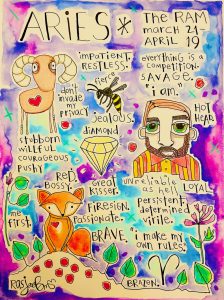 ARIES*
The RAM
march 21-
APRIL 19
impatient.
RESTLESS.
everything is a
competition.
SAVAGE.
fierce
don't
invade
my
privacy
"i am"
HOT
HEAD
jealous.
diamond
stubborn
willful
courageous
pushy
Red.
Bossy.
Great
kisser.
unreliable
as hell
LOYAL
FIRESIGN.
Passionate.
persistent.
determined
virile.
me
first.
BRAVE.
"i make my
own rules."
BRAZEN.